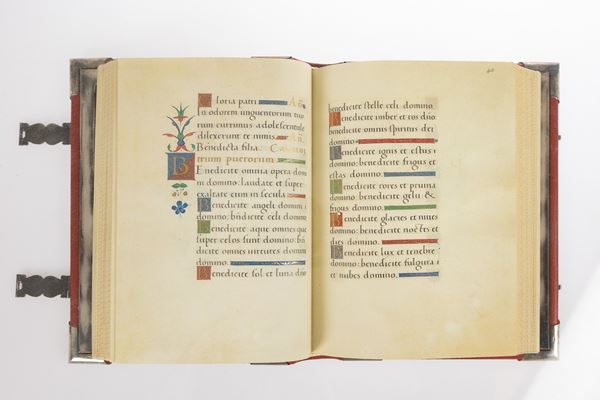 Gloria patri Añ
In odorem unguentorum tuo
rum currimus adolescentule
dilexerunt te nimis. Añ.
Benedicta filia. Canticum
trium puerorum
Benedicite omnia opera domi
ni domino: laudate et super
exaltate eum in secula
Benedicite angeli domini
domino: bñdicite celi domino
Benedicite aque omnes que
super celos sunt domino: bñ
dicite omnes virtutes domini
domino.
Benedicite sol et luna dño
40
benedicite stelle celi domino.
Benedicite imber et ros dño
benedicite omnis spiritus dei
domino
Benedicite ignis et estus
domino: benedicite frigus et
estas domino.
Benedicite rores et pruina
domino: benedicite gelu &
frigus domino.
Benedicite glacies et niues
domino: benedicite noctes et
dies domino.
Benedicite lux et tenebre
domino: benedicite fulgura
et nubes domino.